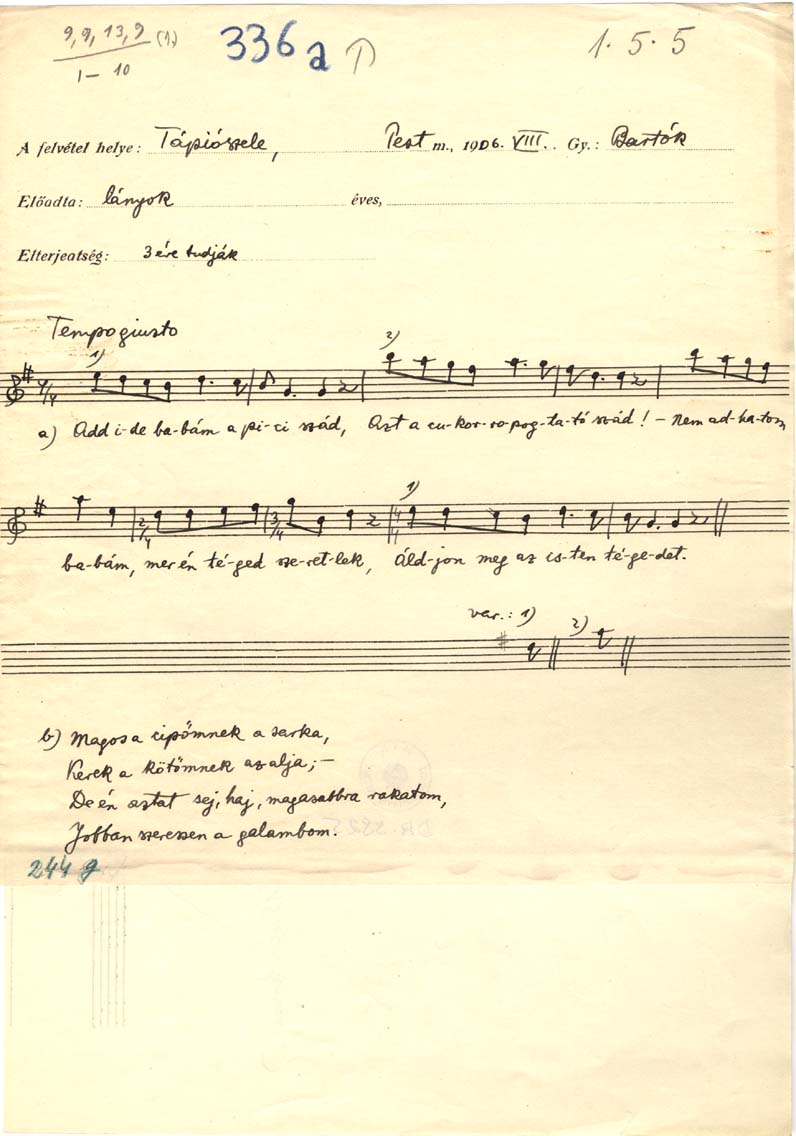 9, 9, 13, 9 (1.)
1 – 10
336 a
1 . 5 . 5
A felvétel helye: Tápiószele, Pest m., 1906. VIII. Gy.: Bartók
Előadta: lányok éves,
Elterjedtség: 3 éve tudják
Tempo giusto
1) 2)
4/4
a) Add i-de ba-bám a pi-ci szád, Azt a cu-kor-ro-pog-ta-tó szád! – Nem ad-ha-tom
1)
2/4 3/4 4/4
ba-bám, mer én té-ged sze-ret-lek, Áld-jon meg az is-ten té-ge-det.
var.: 1) 2)
b) Magos a cipőmnek a sarka,
Kerek a kötőmnek az alja; –
De én aztat sej, haj, magasabbra rakatom,
Jobban szeressen a galambom.
244 g